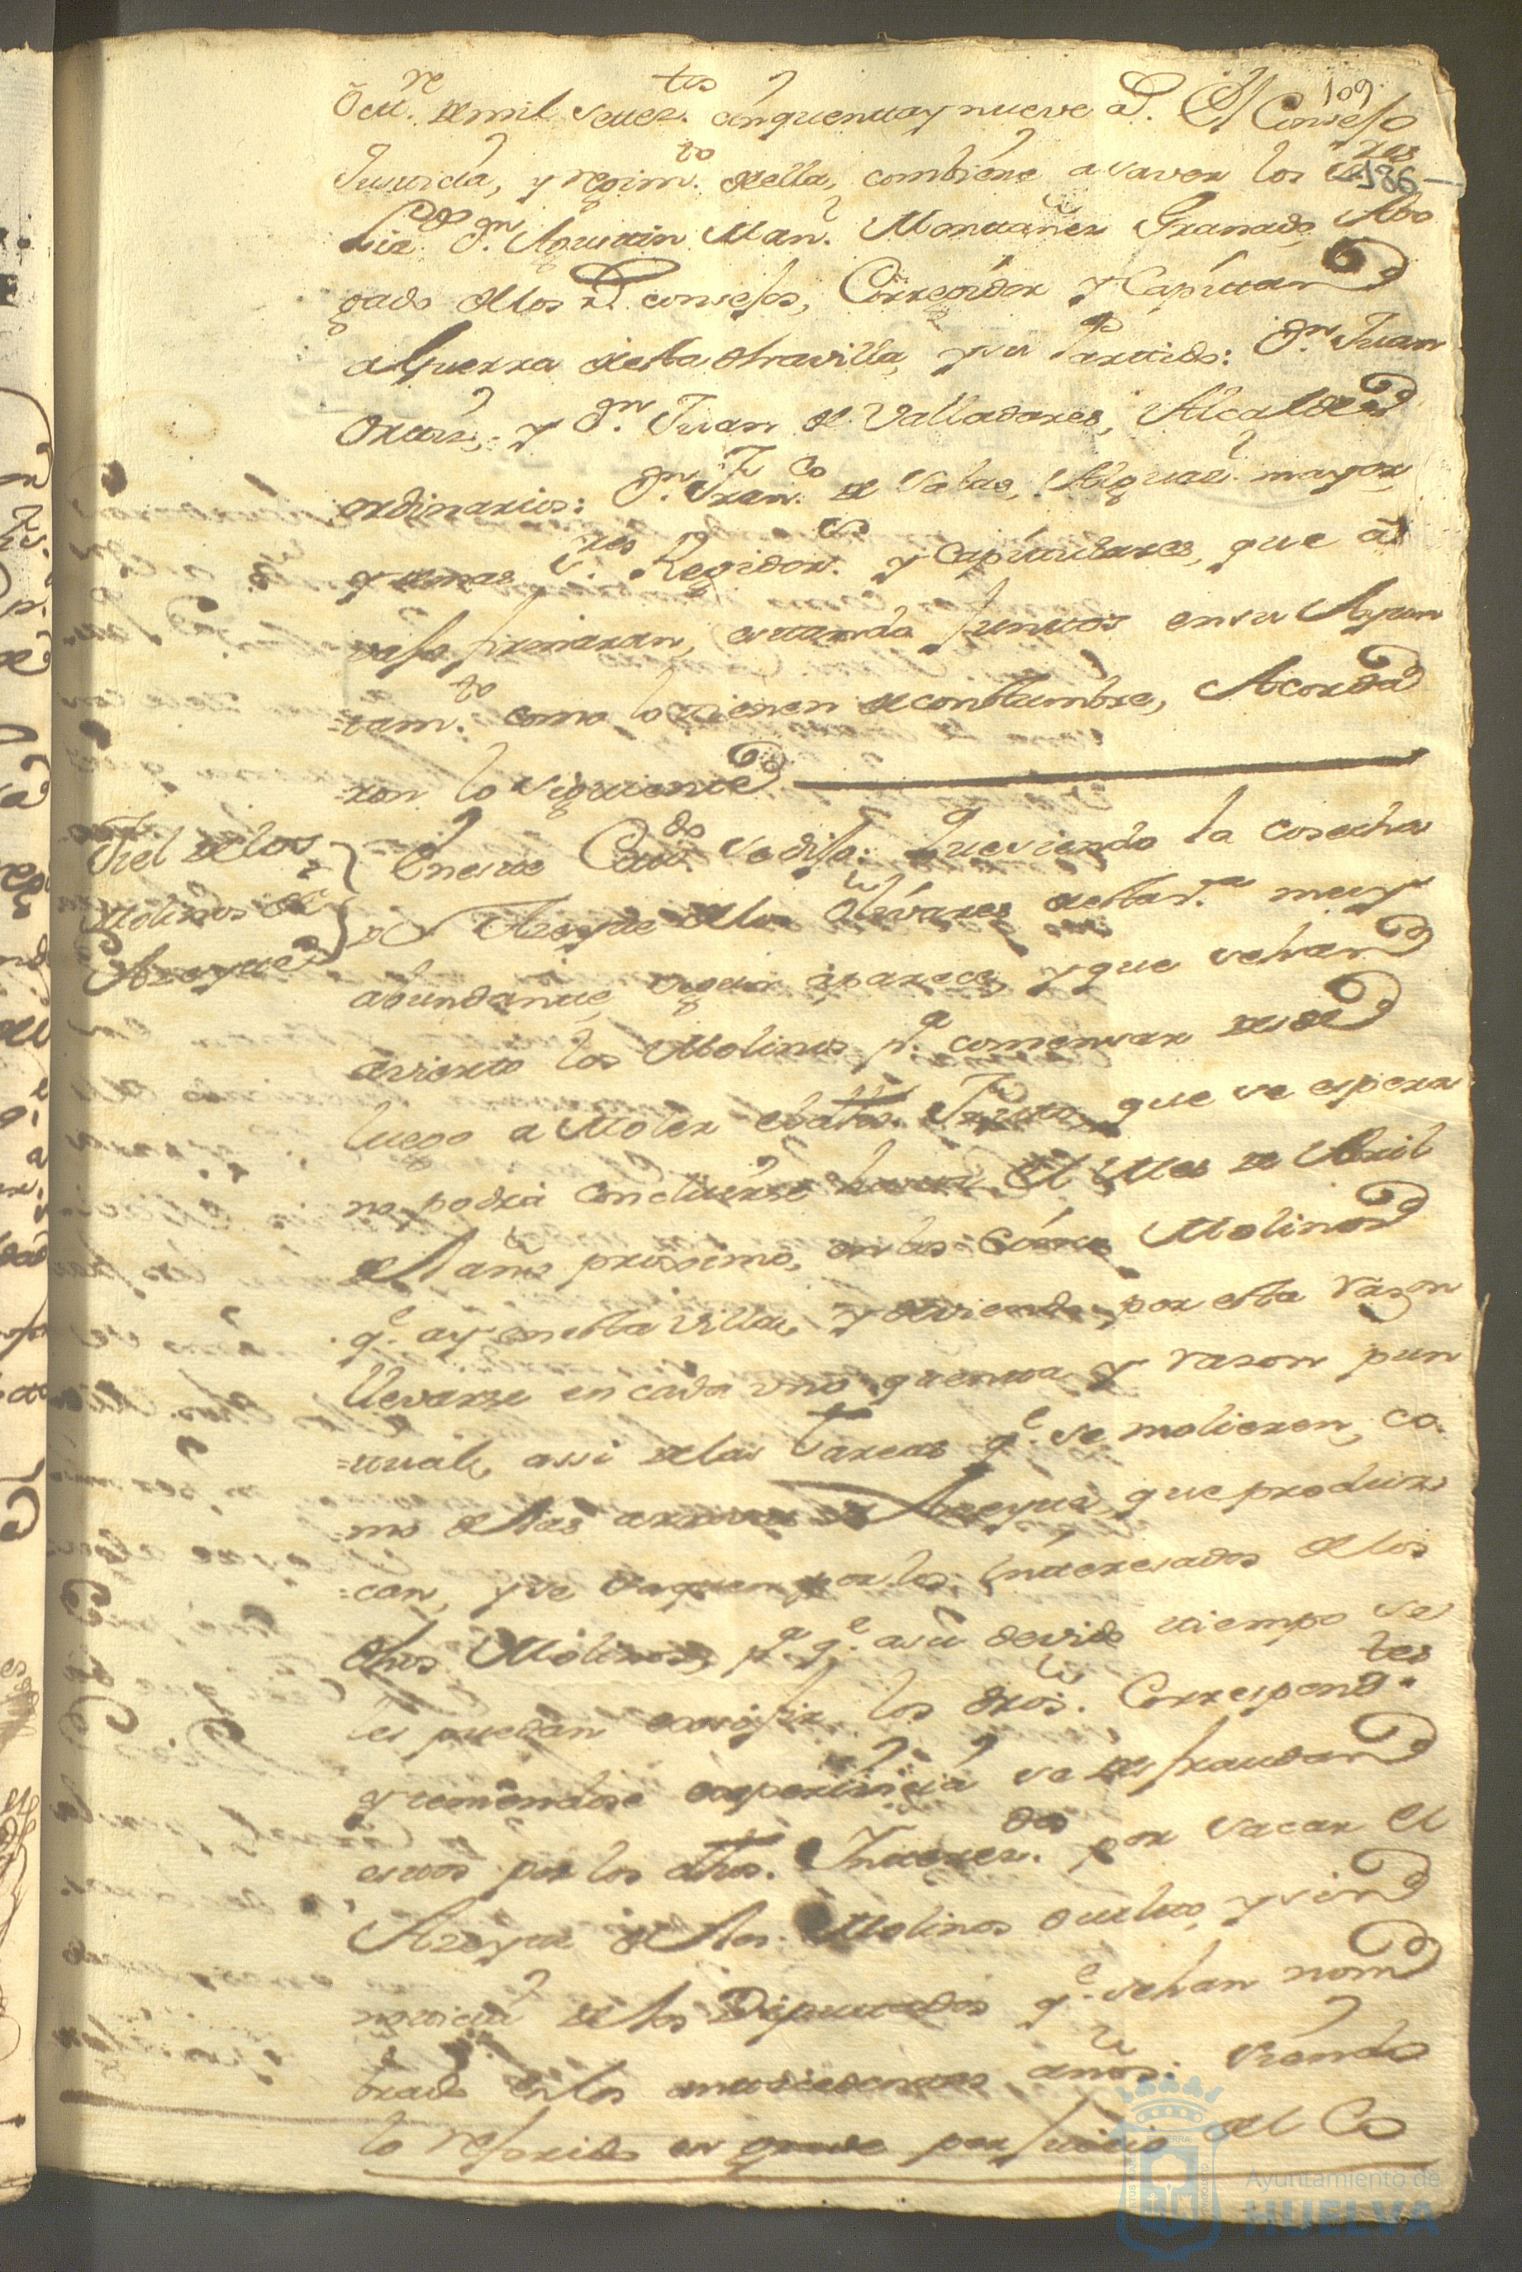 109.
Octt.re de mil settez.tos cinquenta y nueve as. El Consejo
Justicia, y regim.to della, combiene a saver los S.res
136
Liz.do Dn. Agustin Man.l Montañez Granado, Abo
gado de los Rs. consejos, Corregidor y Capittan
a Guerra desta dha villa, y su Partido: Dn. Juan
Orttiz, y Dn. Juan de Valladares, Alcaldes
ordinarios: Dn. Fran.co de Salas, Alguazl. mayor,
y demas S.res Regidor.s y Capitulares, que a
vajo firmaran, estando Junttos en su Ayun
=tam.to como lo tienen de costumbre, Acorda
=ron lo siguiente
Fiel de los
Molinos de
Azeyte
En este Cav.do se dijo: Que siendo la cosecha
de Azeyte de los Olivares desta V.a muy
abundante, segun aparece, y que se han
avierto los Molinos p.a comensar desde
luego a Moler el dho. Frutto, que se espera
no podra concluirse hasta el Mes de Abril
del año proximo, en los Molinos
q.e ay en esta Villa, y deviendo por esta razon
llevarse en cada uno quenta y razon pun
=tual, assi de las Tareas q.e se molieren, co
mo de las arrovas de Azeyte, que produz
=can, y se saquen por los Interesados de los
dhos Molinos, p.a q.e a su devido tiempo se
les puedan exsijir los dros. Correspond.tes
y teniendose experiencia se desfraudan
estos por los dhos. Interez.dos por sacar el
Azeyte de los Molinos oculto, y sin
noticia de los Diputtados q.e se han nom
brado en los antecedentes años: siendo
lo referido en grave perjuicio del Co
Ayuntamiento de
HUELVA